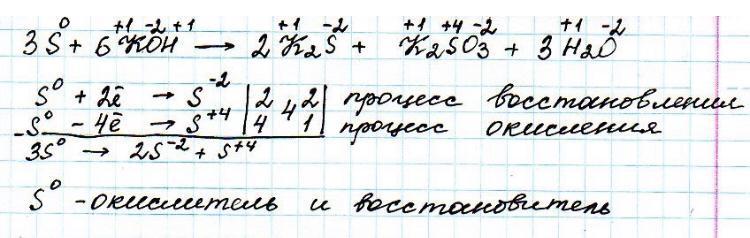 +1 -2 +1 +1 -2 +1 +4 -2 +1 -2
3S⁰ + 6KOH → 2K₂S + K₂SO₃ + 3H₂O
S⁰ + 2ē → S⁻² | 2 | 4 | 2 | процесс восстановления
S⁰ - 4ē → S⁺⁴ | 4 | 1 | процесс окисления
3S⁰ → 2S⁻² + S⁺⁴
S⁰ - окислитель и восстановитель